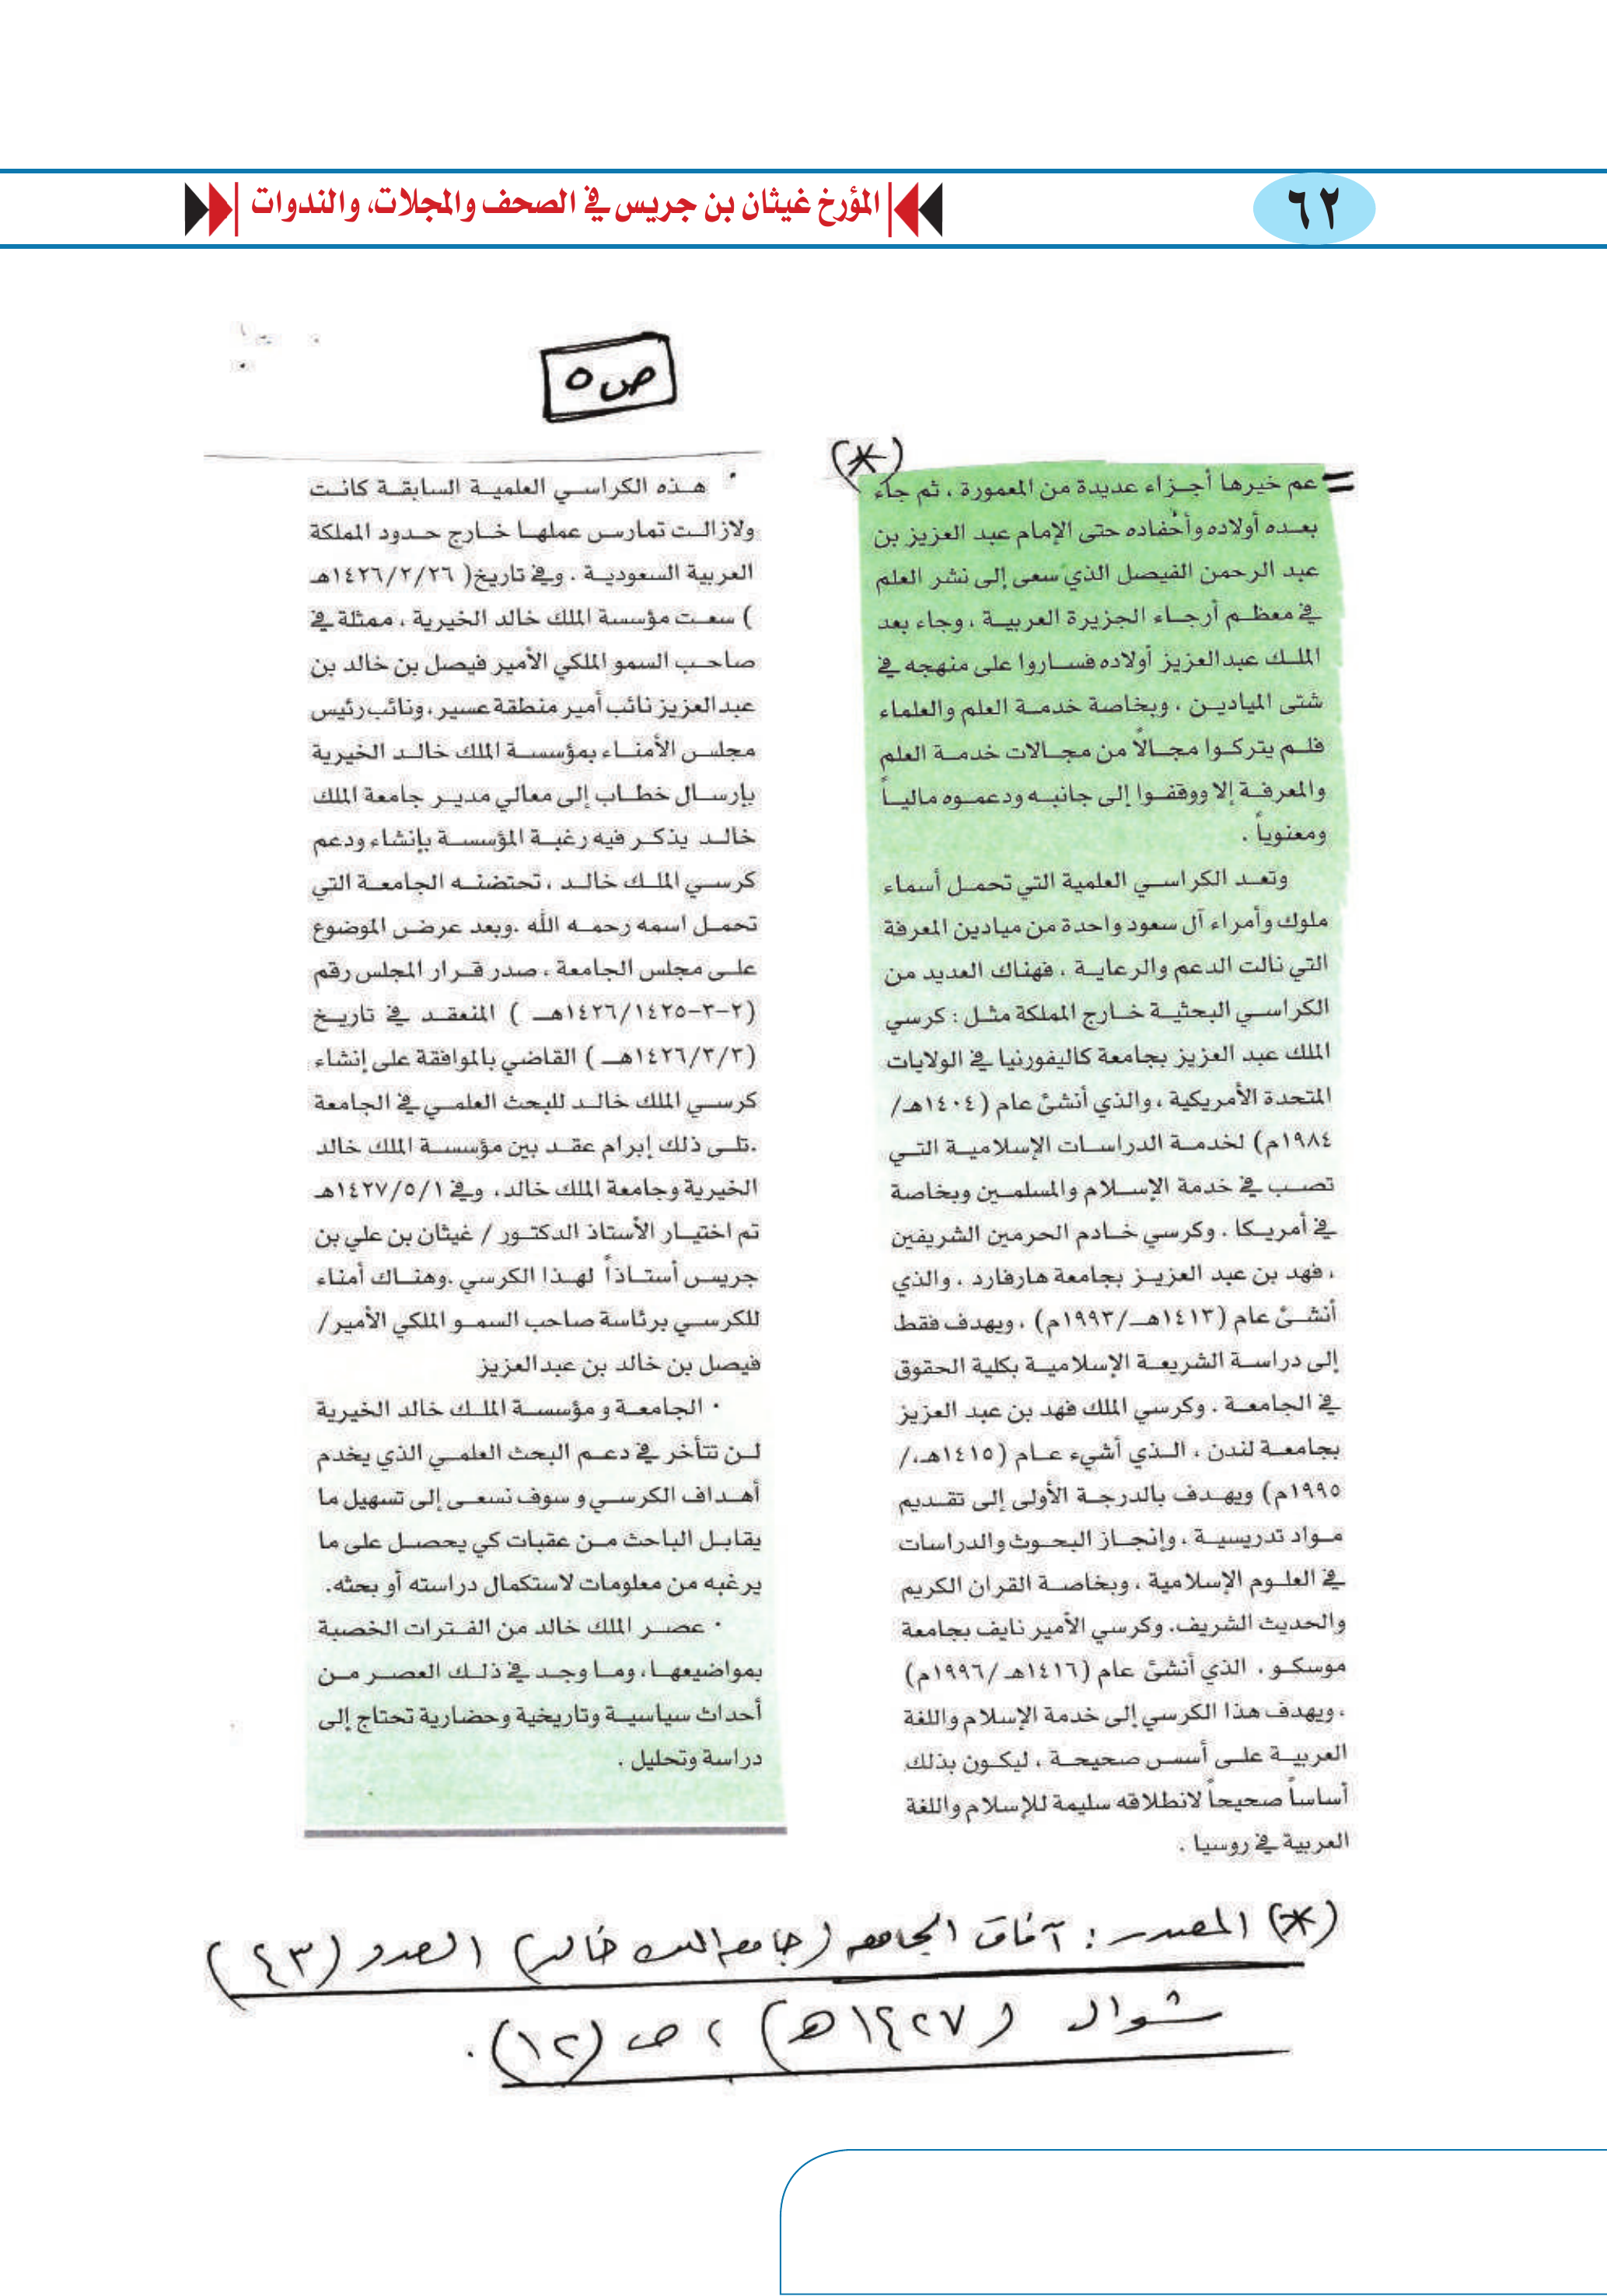 ٦٢
المؤرخ غيثان بن جريس في الصحف والمجلات، والندوات
ص ٥
(*)
= عم خيرها أجزاء عديدة من المعمورة ، ثم جاء
بعده أولاده وأحفاده حتى الإمام عبد العزيز بن
عبد الرحمن الفيصل الذي سعى إلى نشر العلم
في معظم أرجاء الجزيرة العربية ، وجاء بعد
الملك عبدالعزيز أولاده فساروا على منهجه في
شتى الميادين ، وبخاصة خدمة العلم والعلماء
فلم يتركوا مجالاً من مجالات خدمة العلم
والمعرفة إلا ووقفوا إلى جانبه ودعموه مالياً
ومعنوياً .
وتعد الكراسي العلمية التي تحمل أسماء
ملوك وأمراء آل سعود واحدة من ميادين المعرفة
التي نالت الدعم والرعاية ، فهناك العديد من
الكراسي البحثية خارج المملكة مثل : كرسي
الملك عبد العزيز بجامعة كاليفورنيا في الولايات
المتحدة الأمريكية ، والذي أنشئ عام (١٤٠٤هـ/
١٩٨٤م) لخدمة الدراسات الإسلامية التي
تصب في خدمة الإسلام والمسلمين وبخاصة
في أمريكا . وكرسي خادم الحرمين الشريفين
، فهد بن عبد العزيز بجامعة هارفارد ، والذي
أنشئ عام (١٤١٣هـ/١٩٩٣م) ، ويهدف فقط
إلى دراسة الشريعة الإسلامية بكلية الحقوق
في الجامعة . وكرسي الملك فهد بن عبد العزيز
بجامعة لندن ، الذي أشيء عام (١٤١٥هـ،/
١٩٩٥م) ويهدف بالدرجة الأولى إلى تقديم
مواد تدريسية ، وإنجاز البحوث والدراسات
في العلوم الإسلامية ، وبخاصة القران الكريم
والحديث الشريف. وكرسي الأمير نايف بجامعة
موسكو ، الذي أنشئ عام (١٤١٦هـ /١٩٩٦م)
، ويهدف هذا الكرسي إلى خدمة الإسلام واللغة
العربية على أسس صحيحة ، ليكون بذلك
أساساً صحيحاً لانطلاقه سليمة للإسلام واللغة
العربية في روسيا .
• هذه الكراسي العلمية السابقة كانت
ولازالت تمارس عملها خارج حدود المملكة
العربية السعودية . وفي تاريخ( ١٤٢٦/٢/٢٦هـ
) سعت مؤسسة الملك خالد الخيرية ، ممثلة في
صاحب السمو الملكي الأمير فيصل بن خالد بن
عبدالعزيز نائب أمير منطقة عسير، ونائب رئيس
مجلس الأمناء بمؤسسة الملك خالد الخيرية
بإرسال خطاب إلى معالي مدير جامعة الملك
خالد يذكر فيه رغبة المؤسسة بإنشاء ودعم
كرسي الملك خالد ، تحتضنه الجامعة التي
تحمل اسمه رحمه الله .وبعد عرض الموضوع
على مجلس الجامعة ، صدر قرار المجلس رقم
(٢-٣-١٤٢٦/١٤٢٥هـ ) المنعقد في تاريخ
(١٤٢٦/٣/٣هـ ) القاضي بالموافقة على إنشاء
كرسي الملك خالد للبحث العلمي في الجامعة
.تلى ذلك إبرام عقد بين مؤسسة الملك خالد
الخيرية وجامعة الملك خالد، وفي ١٤٢٧/٥/١هـ
تم اختيار الأستاذ الدكتور / غيثان بن علي بن
جريس أستاذاً لهذا الكرسي .وهناك أمناء
للكرسي برئاسة صاحب السمو الملكي الأمير/
فيصل بن خالد بن عبدالعزيز
• الجامعة و مؤسسة الملك خالد الخيرية
لن تتأخر في دعم البحث العلمي الذي يخدم
أهداف الكرسي و سوف نسعى إلى تسهيل ما
يقابل الباحث من عقبات كي يحصل على ما
يرغبه من معلومات لاستكمال دراسته أو بحثه.
• عصر الملك خالد من الفترات الخصبة
بمواضيعها، وما وجد في ذلك العصر من
أحداث سياسية وتاريخية وحضارية تحتاج إلى
دراسة وتحليل .
(*) المصدر : آفاق الجامعه (جامعه الملك خالد) العدد (٤٣)
شوال (١٤٢٧هـ) ، ص (١٢) .